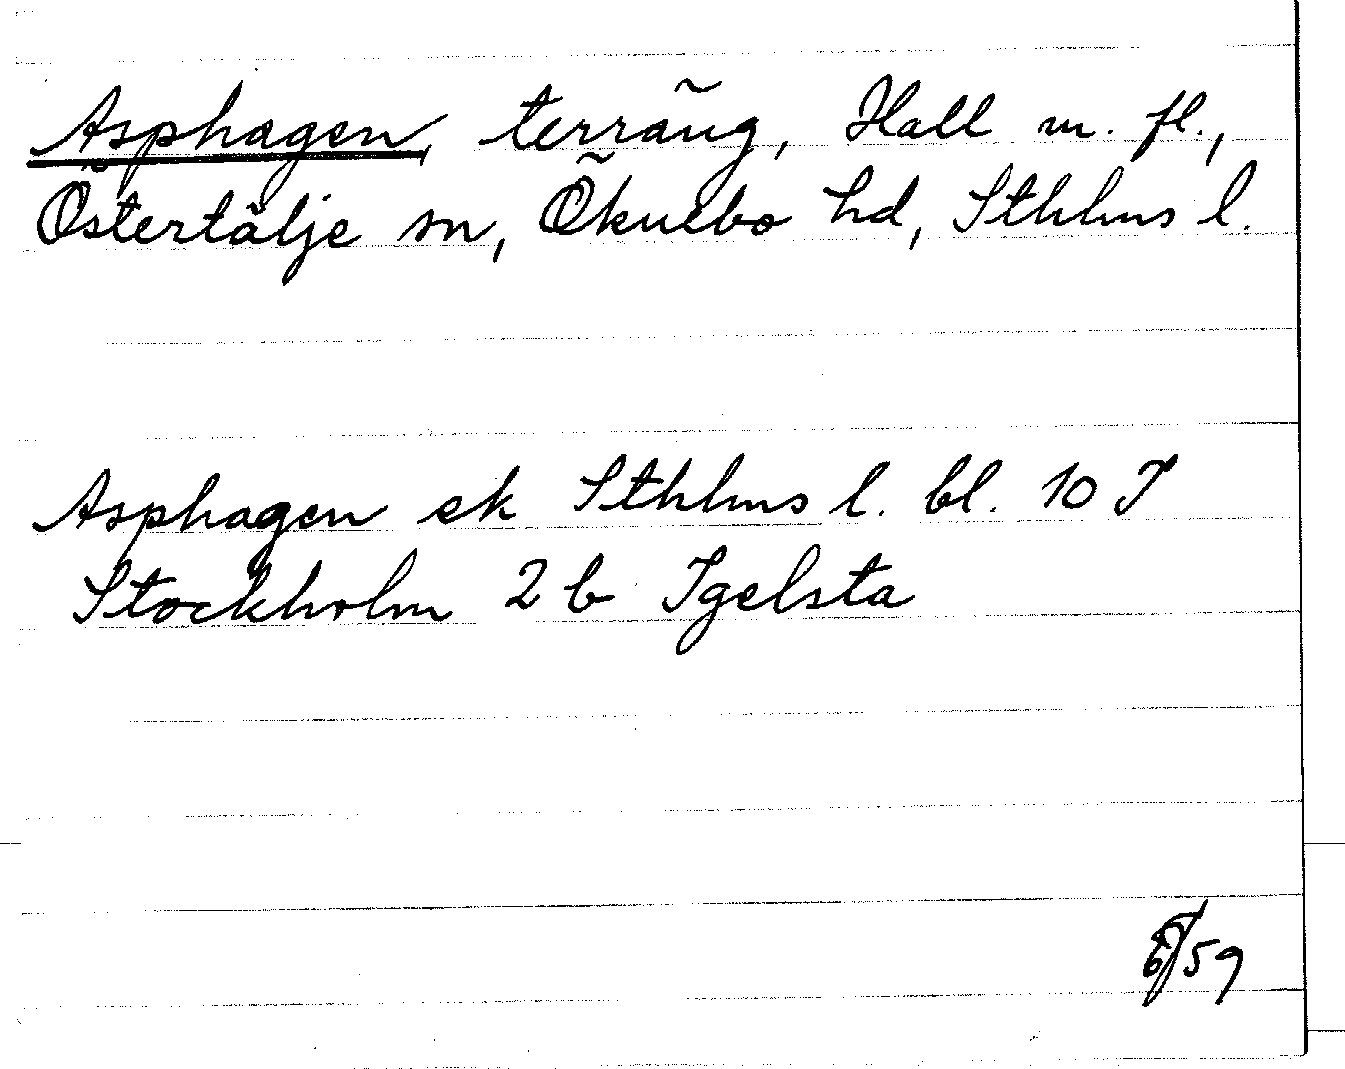 Asphagen, terräng, Hall m. fl.,
Östertälje sn, Öknebo hd, Sthlms l.
Asphagen ek Sthlms l. bl. 10 J
Stockholm 2 b Igelsta
/59